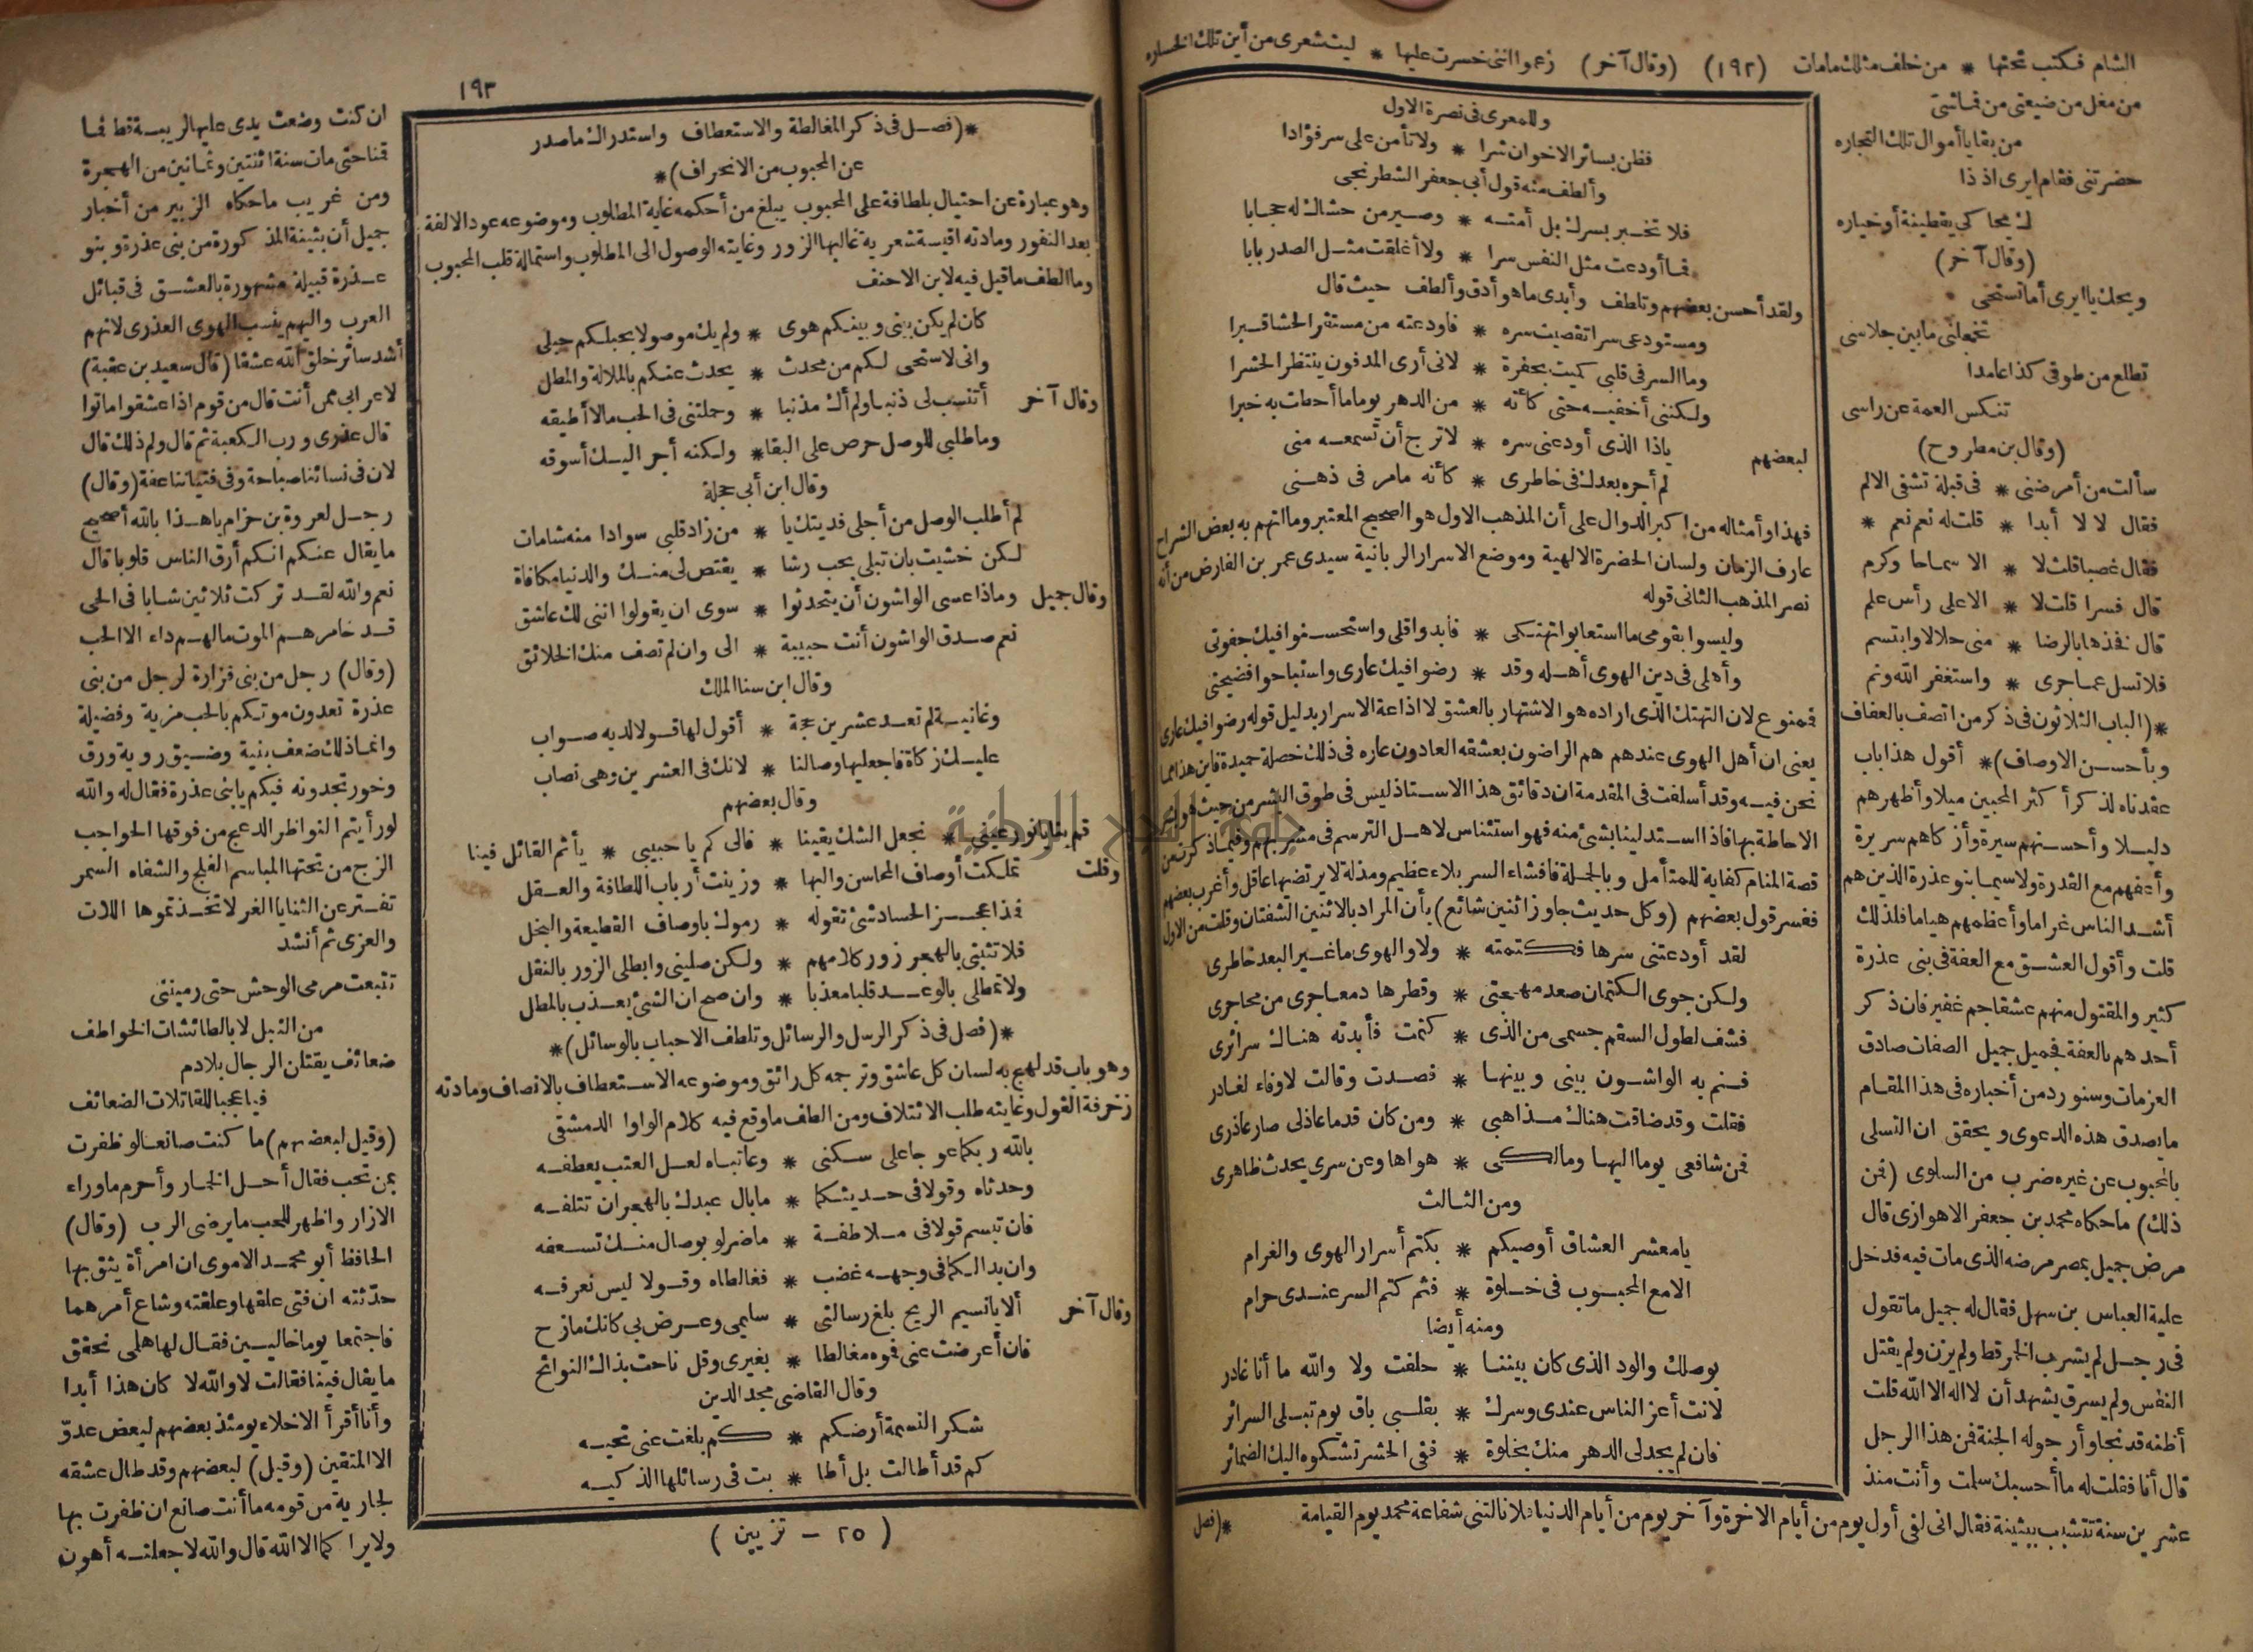 الشام فكتب تحتها * من خلف مثلث مامات (١٩٢) (وقال آخر) زعموا اننى خسرت عليها * ليت شعرى من أين تلك الخساره
من مغل من ضيعتى من قماشتى
من بقايا أموال تلك التجاره
حضرتنى فقام ايرى اذ ذا
ك يحا كى يقطينة أو خياره
(وقال آخر)
ويحك يا ايرى أما تستحى
تخجلنى ما بين جلاسى
تطلع من طوقى كذا عامدا
تنكس العمة عن راسى
(وقال بن مطروح)
سألت من أمرضنى * فى قبلة تشفى الالم
فقال لا لا أبدا * قلت له نعم نعم *
فقال غصبا قلت لا * الا سماحا وكرم
قال فسرا قلت لا * الا على رأس علم
قال فخذها بالرضا * منى حلالا وابتسم
فلا تسل عما جرى * واستغفر الله ونم
*(الباب الثلاثون فى ذكر من اتصف بالعفاف
وبأحسن الاوصاف)* أقول هذا باب
عقدناه لذكر أكثر المحبين ميلا وأظهرهم
دليلا وأحسنهم سيرة وأزكاهم سريرة
وأعفهم مع القدرة ولا سيما بنو عذرة الذين هم
أشد الناس غراما وأعظمهم هياما فلذلك
قلت وأقول العشق مع العفة فى بنى عذرة
كثير والمقتول منهم عشقا جم غفير فان ذكر
أحدهم بالعفة فجميل جميل الصفات صادق
العزمات وسنورد من أخباره فى هذا المقام
ما يصدق هذه الدعوى ويحقق ان التسلى
بالمحبوب عن غيره ضرب من السلوى (فمن
ذلك) ما حكاه محمد بن جعفر الاهوازى قال
مرض جميل بمصر مرضه الذى مات فيه فدخل
علية العباس بن سهل فقال له جميل ما تقول
فى رجل لم يشرب الخمر قط ولم يزن ولم يقتل
النفس ولم يسرق يشهد أن لا اله الا الله قلت
أظنه قد نجا وأرجو له الجنة فمن هذا الرجل
قال أنا فقلت له ما أحسبك سلمت وأنت منذ
عشرين سنة تتشبب ببثينة فقال انى لفى أول يوم من أيام الآخرة وآخر يوم من أيام الدنيا فلا نالتنى شفاعة محمد يوم القيامة
وللمعرى فى نصرة الاول
فظن بسائر الاخوان شرا * ولا تأمن على سر فؤادا
وألطف منه قول أبى جعفر الشطرنجى
فلا تخبر بسرك بل أمته * وصير من حشاك له حجابا
فما أودعت مثل النفس سرا * ولا أغلقت مثل الصدر بابا
ولقد أحسن بعضهم وتلطف وأبدى ما هو أدق وألطف حيث قال
ومستودعى سرا تقصيت سره * فاودعته من مستقر الحشا قبرا
وما السر فى قلبى كميت بحفرة * لانى أرى المدفون ينتظر الحشرا
ولكننى أخفيه حتى كأنه * من الدهر يوما ما أحطت به خبرا
لبعضهم ياذا الذى أودعنى سره * لا ترج أن تسمعه منى
لم أجره بعدك فى خاطرى * كأنه ما مر فى ذهنى
فهذا وأمثاله من اكبر الدوال على أن المذهب الاول هو الصحيح المعتبر وما اتهم به بعض الشراح
عارف الزمان ولسان الحضرة الالهية وموضع الاسرار الربانية سيدى عمر بن الفارض من أنه
نصر المذهب الثانى قوله
وليسوا بقومى ما استعابوا تهتكى * فابدوا قلى واستحسنوا فيك جفوتى
وأهلى فى دين الهوى أهله وقد * رضوا فيك عارى واستباحوا فضيحتى
فممنوع لان التهتك الذى اراده هو الاشتهار بالعشق لا اذاعة الاسرار بدليل قوله رضوا فيك عارى
يعنى ان أهل الهوى عندهم هم الراضون بعشقه العادون عاره فى ذلك خصلة حميدة فاين هذا مما
نحن فيه وقد أسلفت فى المقدمة ان دقائق هذا الاستاذ ليس فى طوق البشر من حيث هو
الاحاطة بها فاذا استدلينا بشئ منه فهو استئناس لاهل الترسم فى مشربهم وفيما ذكرته من
قصة المنام كفاية للمتأمل وبالجملة فافشاء السر بلاء عظيم ومذلة لا يرتضيها عاقل وأغرب بعضهم
ففسر قول بعضهم (وكل حديث جاوز اثنين شائع) بأن المراد بالاثنين الشفتان وقلت من الاول
لقد أودعتنى سرها فكتمته * ولا والهوى ما غير البعد خاطرى
ولكن جوى الكتمان صعد مهجتى * وقطرها دمعا جرى من محاجرى
فشف لطول السقم جسمى من الذى * كتمت فأبدته هناك سرائرى
فنم به الواشون بينى وبينها * فصدت وقالت لا وفاء لغادر
فقلت وقد ضاقت هناك مذاهبى * ومن كان قدما عاذلى صار عاذرى
فمن شافعى يوما اليها ومالكى * هواها وعن سرى يحدث ظاهرى
ومن الثالث
يا معشر العشاق أوصيكم * بكتم أسرار الهوى والغرام
الا مع المحبوب فى خلوة * فثم كتم السر عندى حرام
ومنه أيضا
بوصلك والود الذى كان بيننا * حلفت ولا والله ما أنا غادر
لانت أعز الناس عندى وسرك * بقلبى باق يوم تبلى السرائر
فان لم يجد لى الدهر منك بخلوة * ففى الحشر تشكوه اليك الضمائر
*(فصل
١٩٣
*(فصل فى ذكر المغالطة والاستعطاف واستدراك ما صدر
عن المحبوب من الانحراف)*
وهو عبارة عن احتيال بلطافة على المحبوب يبلغ من أحكمه غاية المطلوب وموضوعه عود الالفة
بعد النفور ومادته اقيسة شعرية غالبها الزور وغايته الوصول الى المطلوب واستمالة قلب المحبوب
وما الطف ما قيل فيه لابن الاحنف
كان لم يكن بينى وبينكم هوى * ولم يك موصولا بحبلكم حبلى
وانى لاستحى لكم من محدث * يحدث عنكم بالملالة والمطل
وقال آخر أتنسب لى ذنبا ولم أك مذنبا * وحملتنى فى الحب مالا أطيقه
وما طلبى للوصل حرص على البقاء * ولكنه أجر اليك أسوقه
وقال ابن أبى حجلة
لم أطلب الوصل من أجلى فديتك يا * من زاد قلبى سوادا منه شامات
لكن خشيت بان تبلى بحب رشا * يقتص لى منك والدنيا مكافاة
وقال جميل وماذا عسى الواشون أن يتحدثوا * سوى ان يقولوا اننى لك عاشق
نعم صدق الواشون أنت حبيبة * الى وان لم تصف منك الخلائق
وقال ابن سنا الملك
وغانية لم تعد عشرين حجة * أقول لها قولا لديه صواب
عليك زكاة فاجعليها وصالنا * لانك فى العشرين وهى نصاب
وقال بعضهم
قم بنا يا نور عينى * نجعل الشك يقينا * فالى كم يا حبيبى * يأثم القائل فينا
وقلت تملكت أوصاف المحاسن والبها * وزينت أرباب اللطافة والعقل
فذا عجز الحساد شئ تقوله * رموك باوصاف القطيعة والبخل
فلا تثبتى بالهجر زور كلامهم * ولكن صلينى وابطلى الزور بالنقل
ولا تمطلى بالوعد قلبا معذبا * وان صح ان الشئ يعذب بالمطل
*(فصل فى ذكر الرسل والرسائل وتلطف الاحباب بالوسائل)*
وهو باب قد لهج به لسان كل عاشق وترجمه كل رائق وموضوعه الاستعطاف بالانصاف ومادته
زخرفة القول وغايته طلب الائتلاف ومن الطف ما وقع فيه كلام الواوا الدمشقى
بالله ربكما عوجا على سكنى * وعاتباه لعل العتب يعطفه
وحدثاه وقولا فى حديثكما * ما بال عبدك بالهجران تتلفه
فان تبسم قولا فى ملاطفة * ما ضر لو بوصال منك تسعفه
وان بدا لكما فى وجهه غضب * فغالطاه وقولا ليس نعرفه
وقال آخر ألا يا نسيم الريح بلغ رسالتى * سليمى وعرض بى كانك مازح
فان أعرضت عنى فموه مغالطا * بغيرى وقل ناحت بذاك النوائح
وقال القاضى مجد الدين
شكر النسمة أرضكم * كم بلغت عنى تحيه
كم قد أطالت بل أطا * بت فى رسائلها الذكيه
(٢٥ - تزيين)
ان كنت وضعت يدى عليها لريبة قط فما
قمنا حتى مات سنة اثنتين وثمانين من الهجرة
ومن غريب ما حكاه الزبير من أخبار
جميل أن بثينة المذكورة من بنى عذرة وبنو
عذرة قبيلة مشهورة بالعشق فى قبائل
العرب واليهم ينسب الهوى العذرى لانهم
أشد سائر خلق الله عشقا (قال سعيد بن عقبة)
لاعرابى ممن أنت قال من قوم اذا عشقوا ماتوا
قال عذرى ورب الكعبة ثم قال ولم ذلك قال
لان فى نسائنا صباحة وفى فتياننا عفة (وقال)
رجل لعروة بن حزام يا هذا بالله أصحيح
ما يقال عنكم انكم أرق الناس قلوبا قال
نعم والله لقد تركت ثلاثين شابا فى الحى
قد خامرهم الموت مالهم داء الا الحب
(وقال) رجل من بنى فزارة لرجل من بنى
عذرة تعدون موتكم بالحب مزية وفضيلة
وانما ذلك ضعف بنية وضيق روية ورق
وخور تجدونه فيكم يا بنى عذرة فقال له والله
لو رأيتم النواظر الدعج من فوقها الحواجب
الزج من تحتها المباسم الفلج والشفاه السمر
تفتر عن الثنايا الغر لاتخذتموها اللات
والعزى ثم أنشد
تتبعت مرمى الوحش حتى رميننى
من النبل لا بالطائشات الخواطف
ضعائف يقتلن الرجال بلا دم
فيا عجبا للقاتلات الضعائف
(وقيل لبعضهم) ما كنت صانعا لو ظفرت
بمن تحب فقال أحل الخمار وأحرم ما وراء
الازار واظهر للحب ما يرضى الرب (وقال)
الحافظ أبو محمد الاموى ان امرأة يثق بها
حدثته ان فتى علقها وعلقته وشاع أمرهما
فاجتمعا يوما خاليين فقال لها هلمى نحقق
ما يقال فينا فقالت لا والله لا كان هذا أبدا
وأنا أقرأ الاخلاء يومئذ بعضهم لبعض عدو
الا المتقين (وقيل) لبعضهم وقد طال عشقه
لجارية من قومه ما أنت صانع ان ظفرت بها
ولا يراكما الا الله قال والله لا جعلته أهون
جامعة النجاح الوطنية